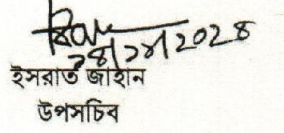 ২০২৪
ইসরাত জাহান
উপসচিব